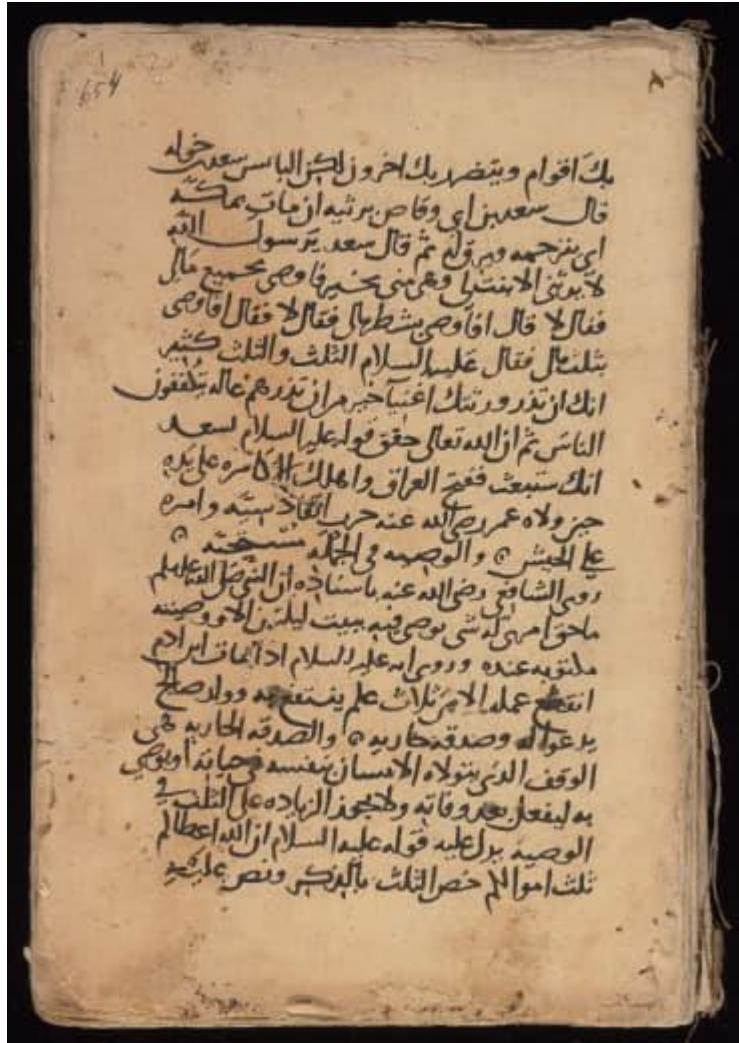 654
بك اقوام ويتضرر بك اخرون لكن البائس سعد بن خوله
قال سعد بن ابي وقاص يرثيه ان مات بمكة
اي يترحمه ويرق له ثم قال سعد يرسول الله
لا يرثني الا ابنتي وهي مني بخير فاوصي بجميع مالي
فقال لا قال افاوصي بشطر مالي فقال لا فقال افاوصي
بثلث مالي فقال عليه السلام الثلث والثلث كثير
انك ان تذر ورثتك اغنيآ خير من ان تذرهم عاله يتكففون
الناس ثم ان الله تعالى حقق قوله عليه السلام لسعد
انك ستبعث ففتح العراق واهلك الاكاسره على يده
حين ولاه عمر رضي الله عنه حرب وامره
على الجيش والوصيه في الجمله مستحبه
روى الشافعي رضي الله عنه باسناده ان النبي صلى الله عليه وسلم
ما حق امرئ له شي يوصي فيه يبيت ليلتين الا ووصيته
مكتوبه عنده وروي انه عليه السلام اذا مات ابن ادم
انقطع عمله الا من ثلاث علم ينتفع به وولد صالح
يدعوا له وصدقه جاريه والصدقه الجاريه هي
الوقف الذي يتولاه الانسان بنفسه في حياته او يوصي
به ليفعل بعد وفاته ولا يجوز الزياده على الثلث في
الوصيه يدل عليه قوله عليه السلام ان الله اعطاكم
ثلث اموالكم خص الثلث بالذكر ونص عليه